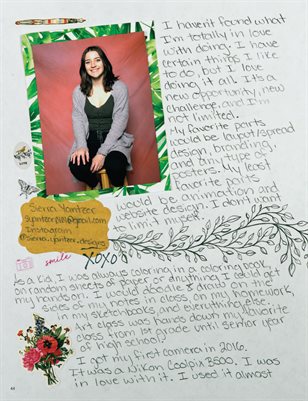 I haven't found what
I'm totally in love
with doing. I have
certain things I like
to do, but I love
doing it all. It's a
new opportunity, new
challenge, and I'm
not limited.
My favorite parts
would be layout/spread
design, branding,
and any type of
posters. My least
favorite parts
would be animation and
type design. I don't have
Sierra Yantzer
@gmail.com
Instagram
@sierra.yantzer.designs
smile
XOXO
As a kid I was always coloring in a coloring book,
or random sheets of paper or anything I could get
my hands on. I would doodle & draw on the
sides of my notes in class, on my homework,
in my sketchbooks, and everything else.
Art class was hands down my favorite
class from 1st grade until senior year
of high school.
I got my first camera in 2016.
It was a Nikon Coolpix B500. I was
in love with it. I used it almost
44